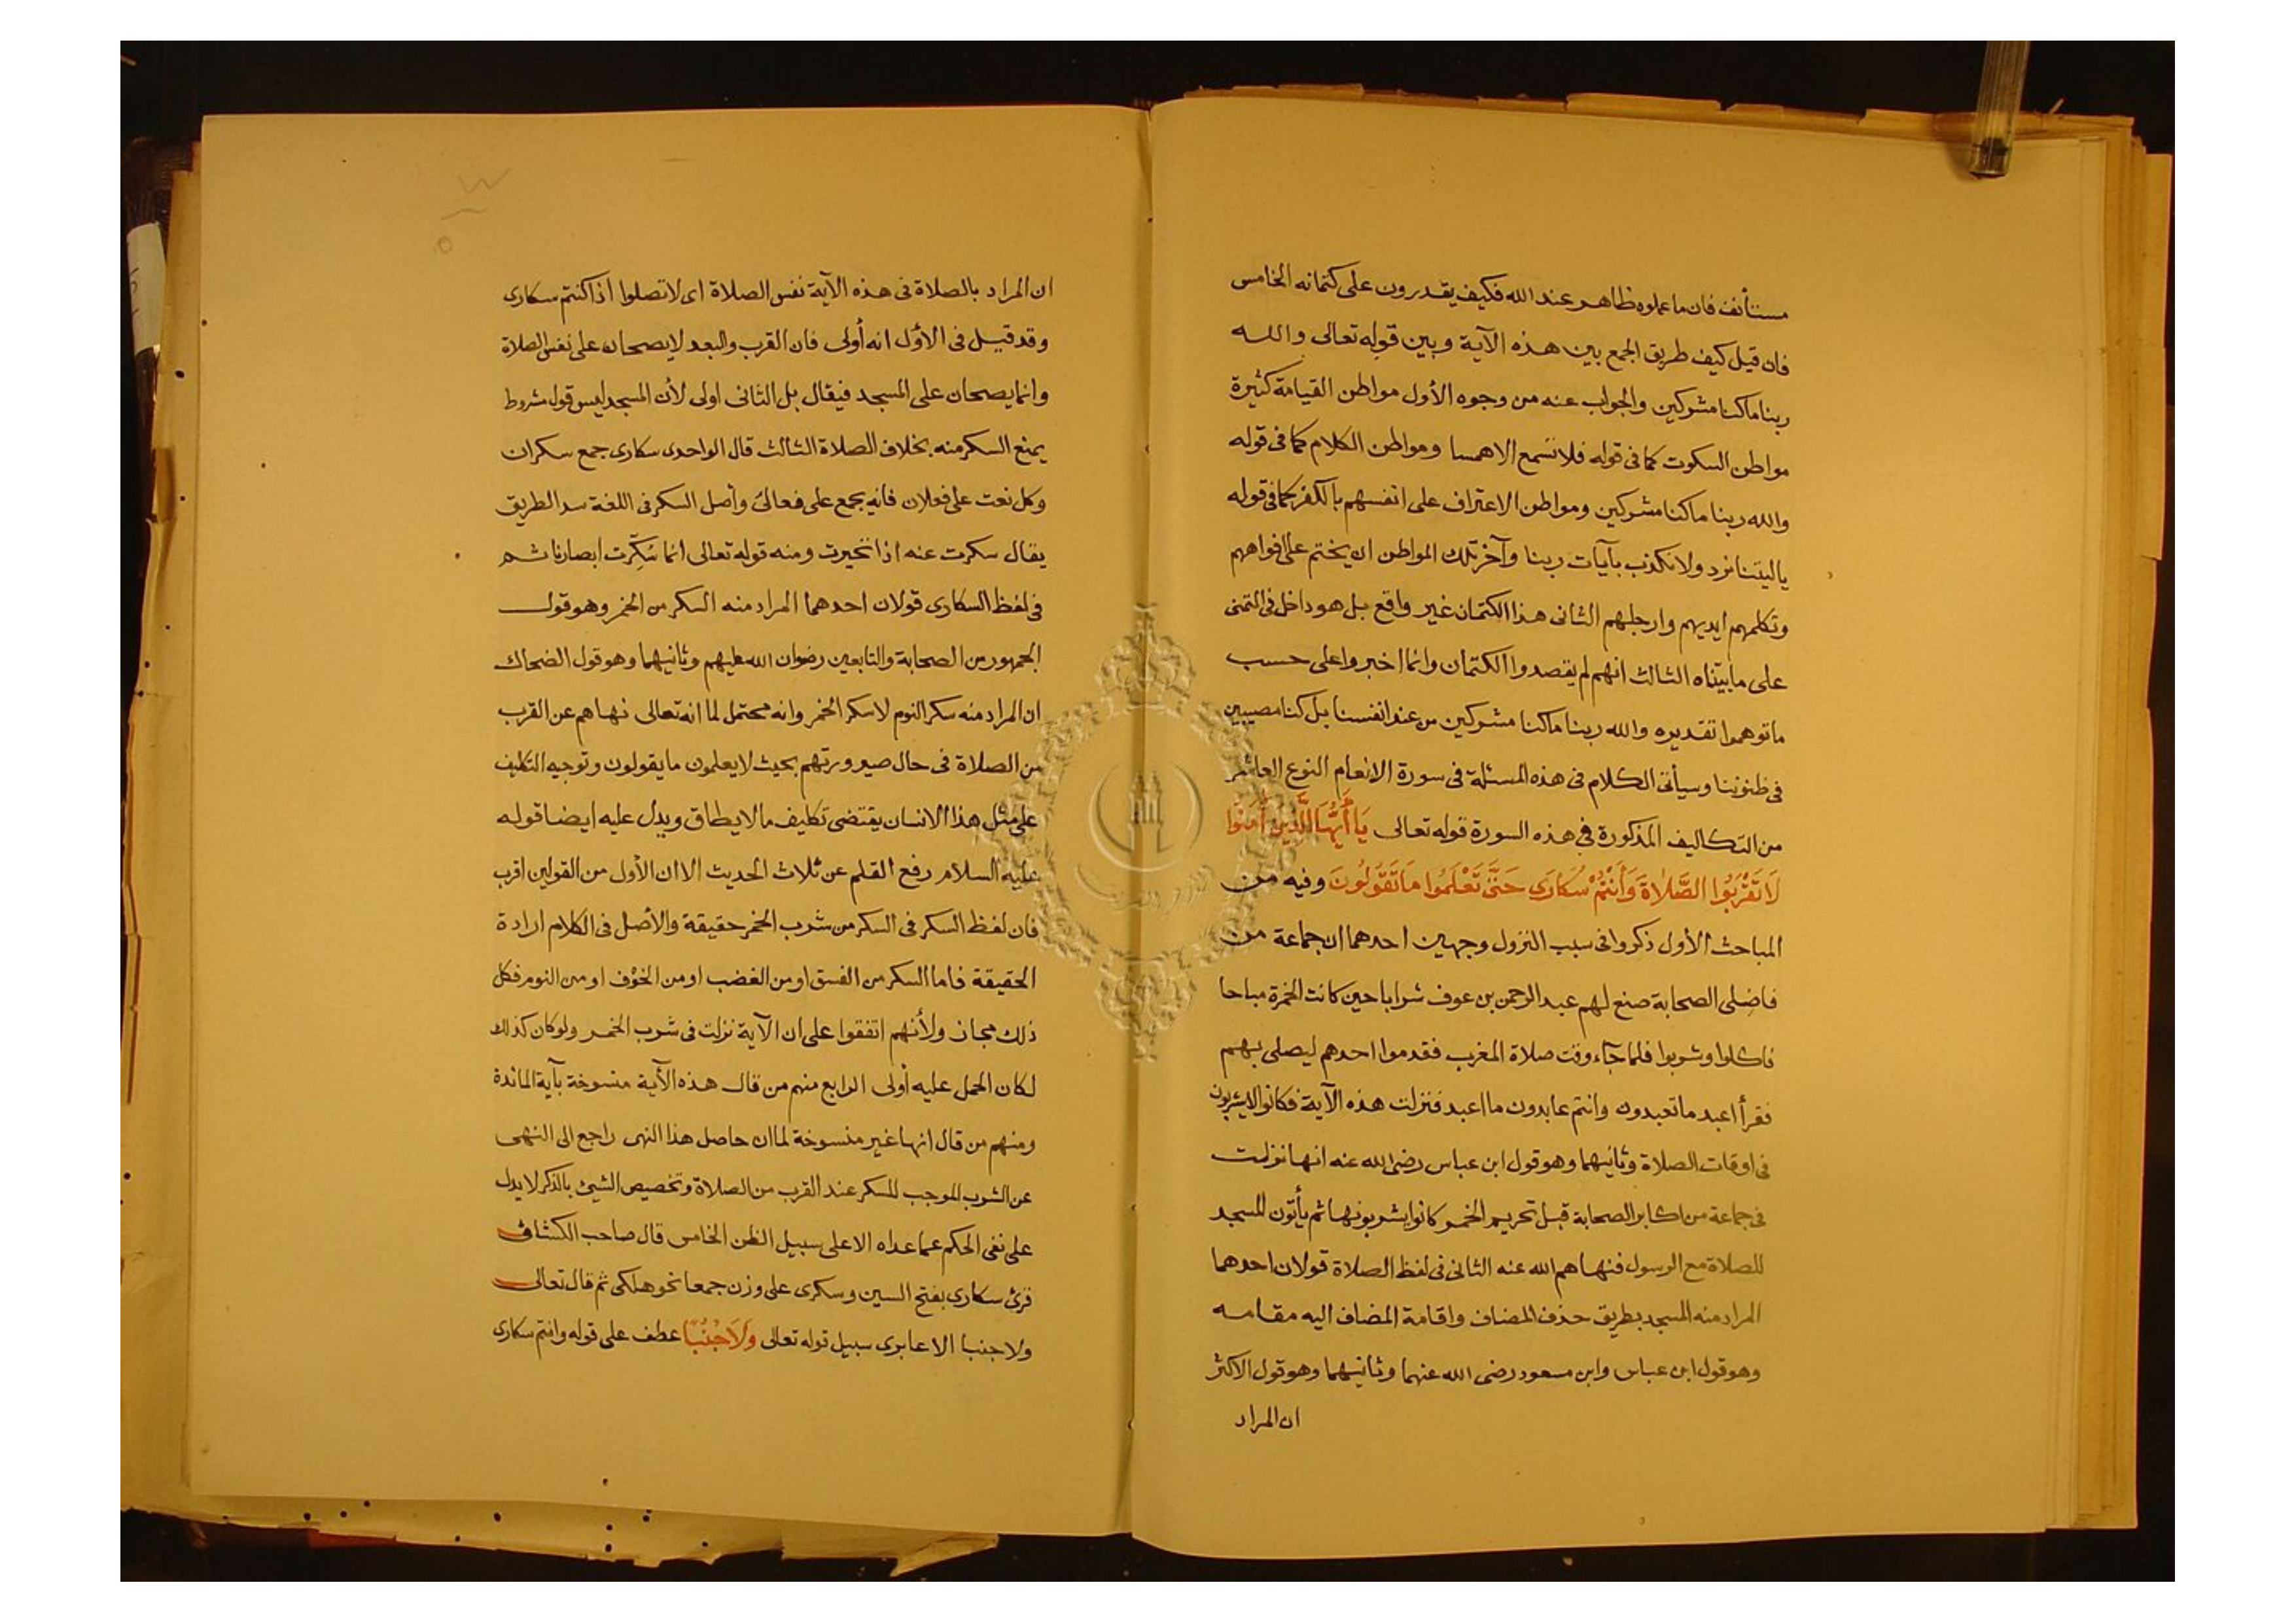 مستأنف فان ما عملوه ظاهر عند الله فكيف يقدرون على كتمانه الخامس
فان قيل كيف طريق الجمع بين هذه الآية وبين قوله تعالى والله
ربنا ما كنا مشركين والجواب عنه من وجوه الأول مواطن القيامة كثيرة
مواطن السكوت كما فى قوله فلا تسمع الا همسا ومواطن الكلام كما فى قوله
والله ربنا ما كنا مشركين ومواطن الاعتراف على انفسهم بالكفر كما فى قوله
يا ليتنا نرد ولا نكذب بآيات ربنا وآخر تلك المواطن ان يختم على افواههم
وتكلمهم ايديهم وارجلهم الثانى هذا الكتمان غير واقع بل هو داخل فى التمنى
على ما بيّناه الثالث انهم لم يقصدوا الكتمان وانما اخبروا على حسب
ما توهموا تقديره والله ربنا ما كنا مشركين من عند انفسنا بل كنا مصيبين
فى ظنوننا وسيأتى الكلام فى هذه المسئلة فى سورة الانعام النوع العاشر
من التكاليف المذكورة فى هذه السورة قوله تعالى يَا أَيُّهَا الَّذِينَ أَمَنُوا
لَا تَقْرَبُوا الصَّلَاةَ وَأَنْتُمْ سُكَارَى حَتَّى تَعْلَمُوا مَا تَقُولُونَ وفيه من
المباحث الأول ذكروا فى سبب النزول وجهين احدهما ان جماعة من
فاضلى الصحابة صنع لهم عبد الرحمن بن عوف شرابا حين كانت الخمرة مباحا
فاكلوا وشربوا فلما جآء وقت صلاة المغرب فقدموا احدهم ليصلى بهم
فقرأ اعبد ما تعبدون وانتم عابدون ما اعبد فنزلت هذه الآية فكانوا لا يشربون
فى اوقات الصلاة وثانيهما وهو قول ابن عباس رضى الله عنه انها نزلت
فى جماعة من اكابر الصحابة قبل تحريم الخمر كانوا يشربونها ثم يأتون المسجد
للصلاة مع الرسول فنهاهم الله عنه الثانى فى لفظ الصلاة قولان احدهما
المراد منه المسجد بطريق حذف المضاف واقامة المضاف اليه مقامه
وهو قول ابن عباس وابن مسعود رضى الله عنهما وثانيهما وهو قول الاكثر
ان المراد
ان المراد بالصلاة فى هذه الآية نفس الصلاة اى لا تصلوا اذا كنتم سكارى
وقد قيل فى الأول انه أولى فان القرب والبعد لا يصحان على نفس الصلاة
وانما يصحان على المسجد فيقال بل الثانى اولى لأن المسجد ليس قوله مشروط
يمنع السكر منه بخلاف الصلاة الثالث قال الواحدى سكارى جمع سكران
وكل نعت على فعلان فانه يجمع على فعالى وأصل السكر فى اللغة سد الطريق
يقال سكرت عنه اذا تحيرت ومنه قوله تعالى انما سُكِّرت ابصارنا ثم
فى لفظ السكارى قولان احدهما المراد منه السكر من الخمر وهو قول
الجمهور من الصحابة والتابعين رضوان الله عليهم وثانيهما وهو قول الضحاك
ان المراد منه سكر النوم لا سكر الخمر وانه محتمل لما انه تعالى نهاهم عن القرب
من الصلاة فى حال صيرورتهم بحيث لا يعلمون ما يقولون وتوجيه التكليف
على مثل هذا الانسان يقتضى تكليف ما لا يطاق ويدل عليه ايضا قوله
عليه السلام رفع القلم عن ثلاث الحديث الا ان الأول من القولين اقرب
فان لفظ السكر فى السكر من شرب الخمر حقيقة والأصل فى الكلام ارادة
الحقيقة فاما السكر من الفسق او من الغضب او من الخوف او من النوم فكل
ذلك مجاز ولأنهم اتفقوا على ان الآية نزلت فى شرب الخمر ولو كان كذلك
لكان الحمل عليه أولى الرابع منهم من قال هذه الآية منسوخة بآية المائدة
ومنهم من قال انها غير منسوخة لما ان حاصل هذا النهى راجع الى النهى
عن الشرب الموجب للسكر عند القرب من الصلاة وتخصيص الشئ بالذكر لا يدل
على نفى الحكم عما عداه الا على سبيل الظن الخامس قال صاحب الكشاف
قرئ سكارى بفتح السين وسكرى على وزن جمعا نحو هلكى ثم قال تعالى
ولا جنبا الا عابرى سبيل قوله تعالى وَلَا جُنُبًا عطف على قوله وانتم سكارى